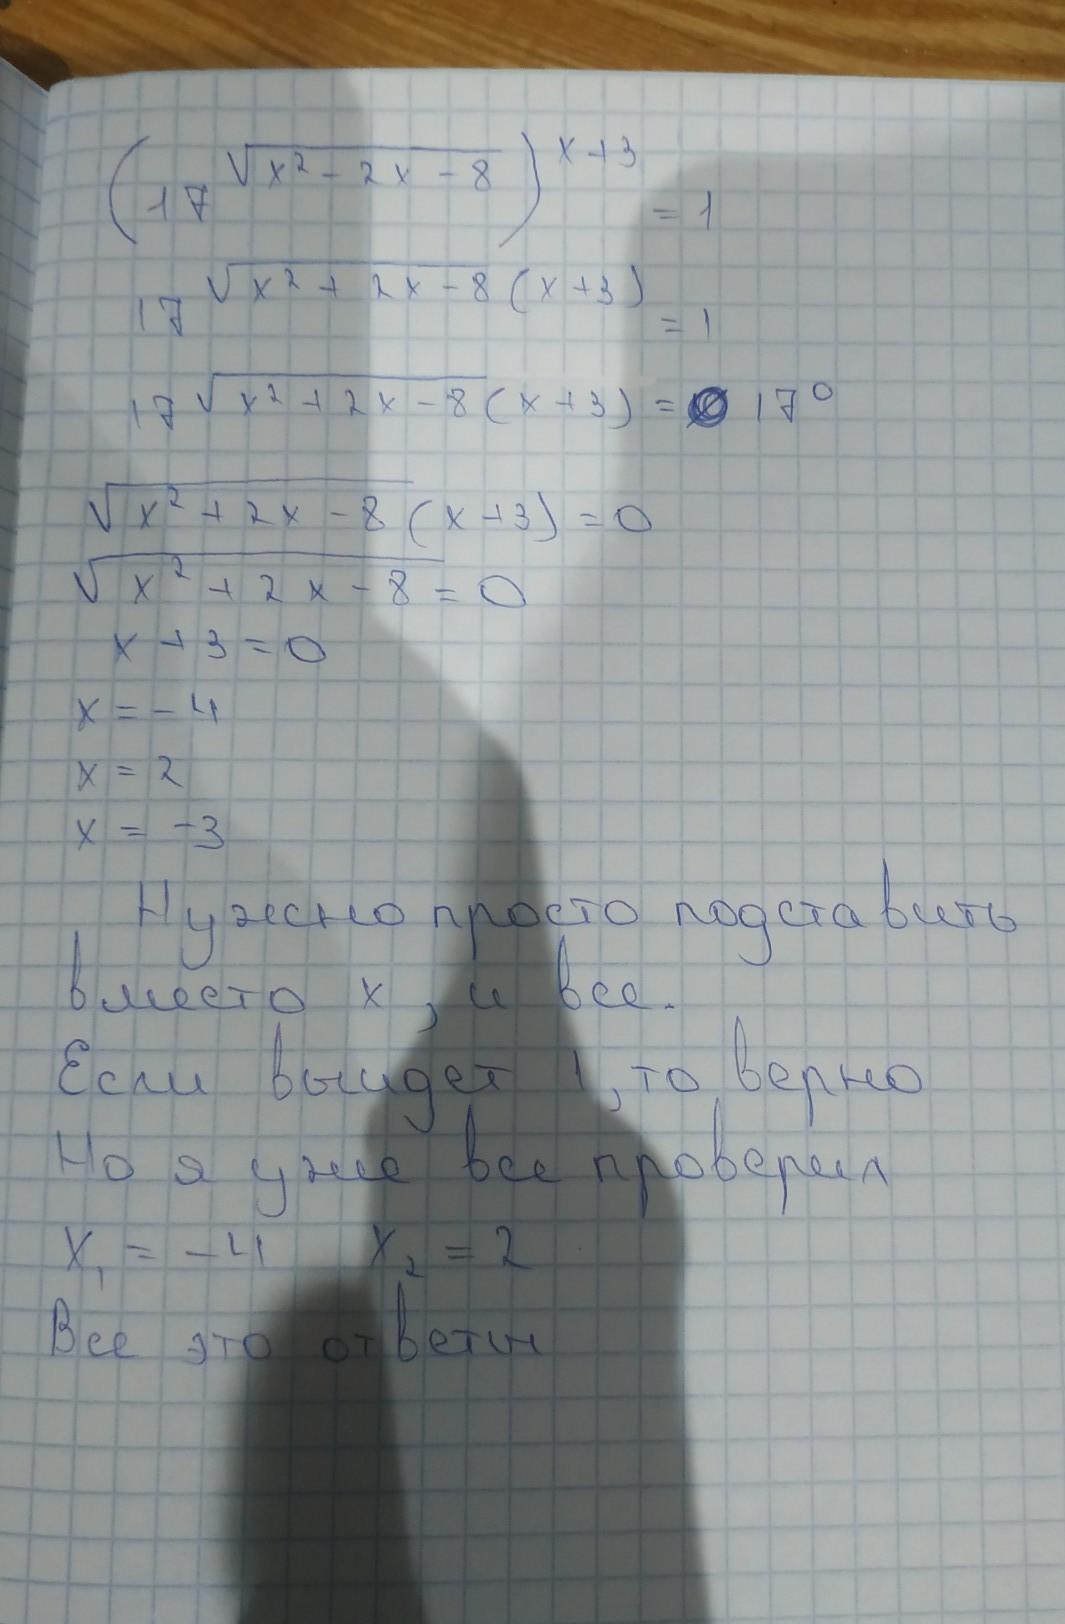 (17^√(x² - 2x - 8))^(x+3) = 1
17^(√(x² + 2x - 8) (x+3)) = 1
17^(√(x² + 2x - 8) (x+3)) = 17⁰
√(x² + 2x - 8) (x+3) = 0
√(x² + 2x - 8) = 0
x + 3 = 0
x = -4
x = 2
x = -3
Нужно просто подставить
вместо x, и все.
Если выидет 1, то верно
Но я уже все проверил
X₁ = -4 X₂ = 2
Все это